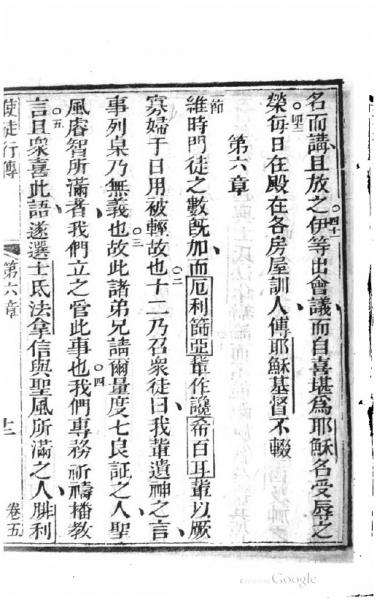 名而講且放之四十伊等出會議而自喜堪為耶穌名受辱之
榮四二每日在殿在各房屋訓人傳耶穌基督不輟
第六章
一節維時門徒之數旣加而厄利篩亞輩作讒希百耳輩以厥
寡婦于日用被輕故也二十二乃召衆徒曰我輩遺神之言
事列桌乃無義也三故此諸弟兄請爾量度七良証之人聖
風睿智所滿者我們立之管此事也四我們專務祈禱播教
言五且衆喜此語遂選士氏法拿信與聖風所滿之人腓利
使徒行傳 第六章 十二 卷五
Google